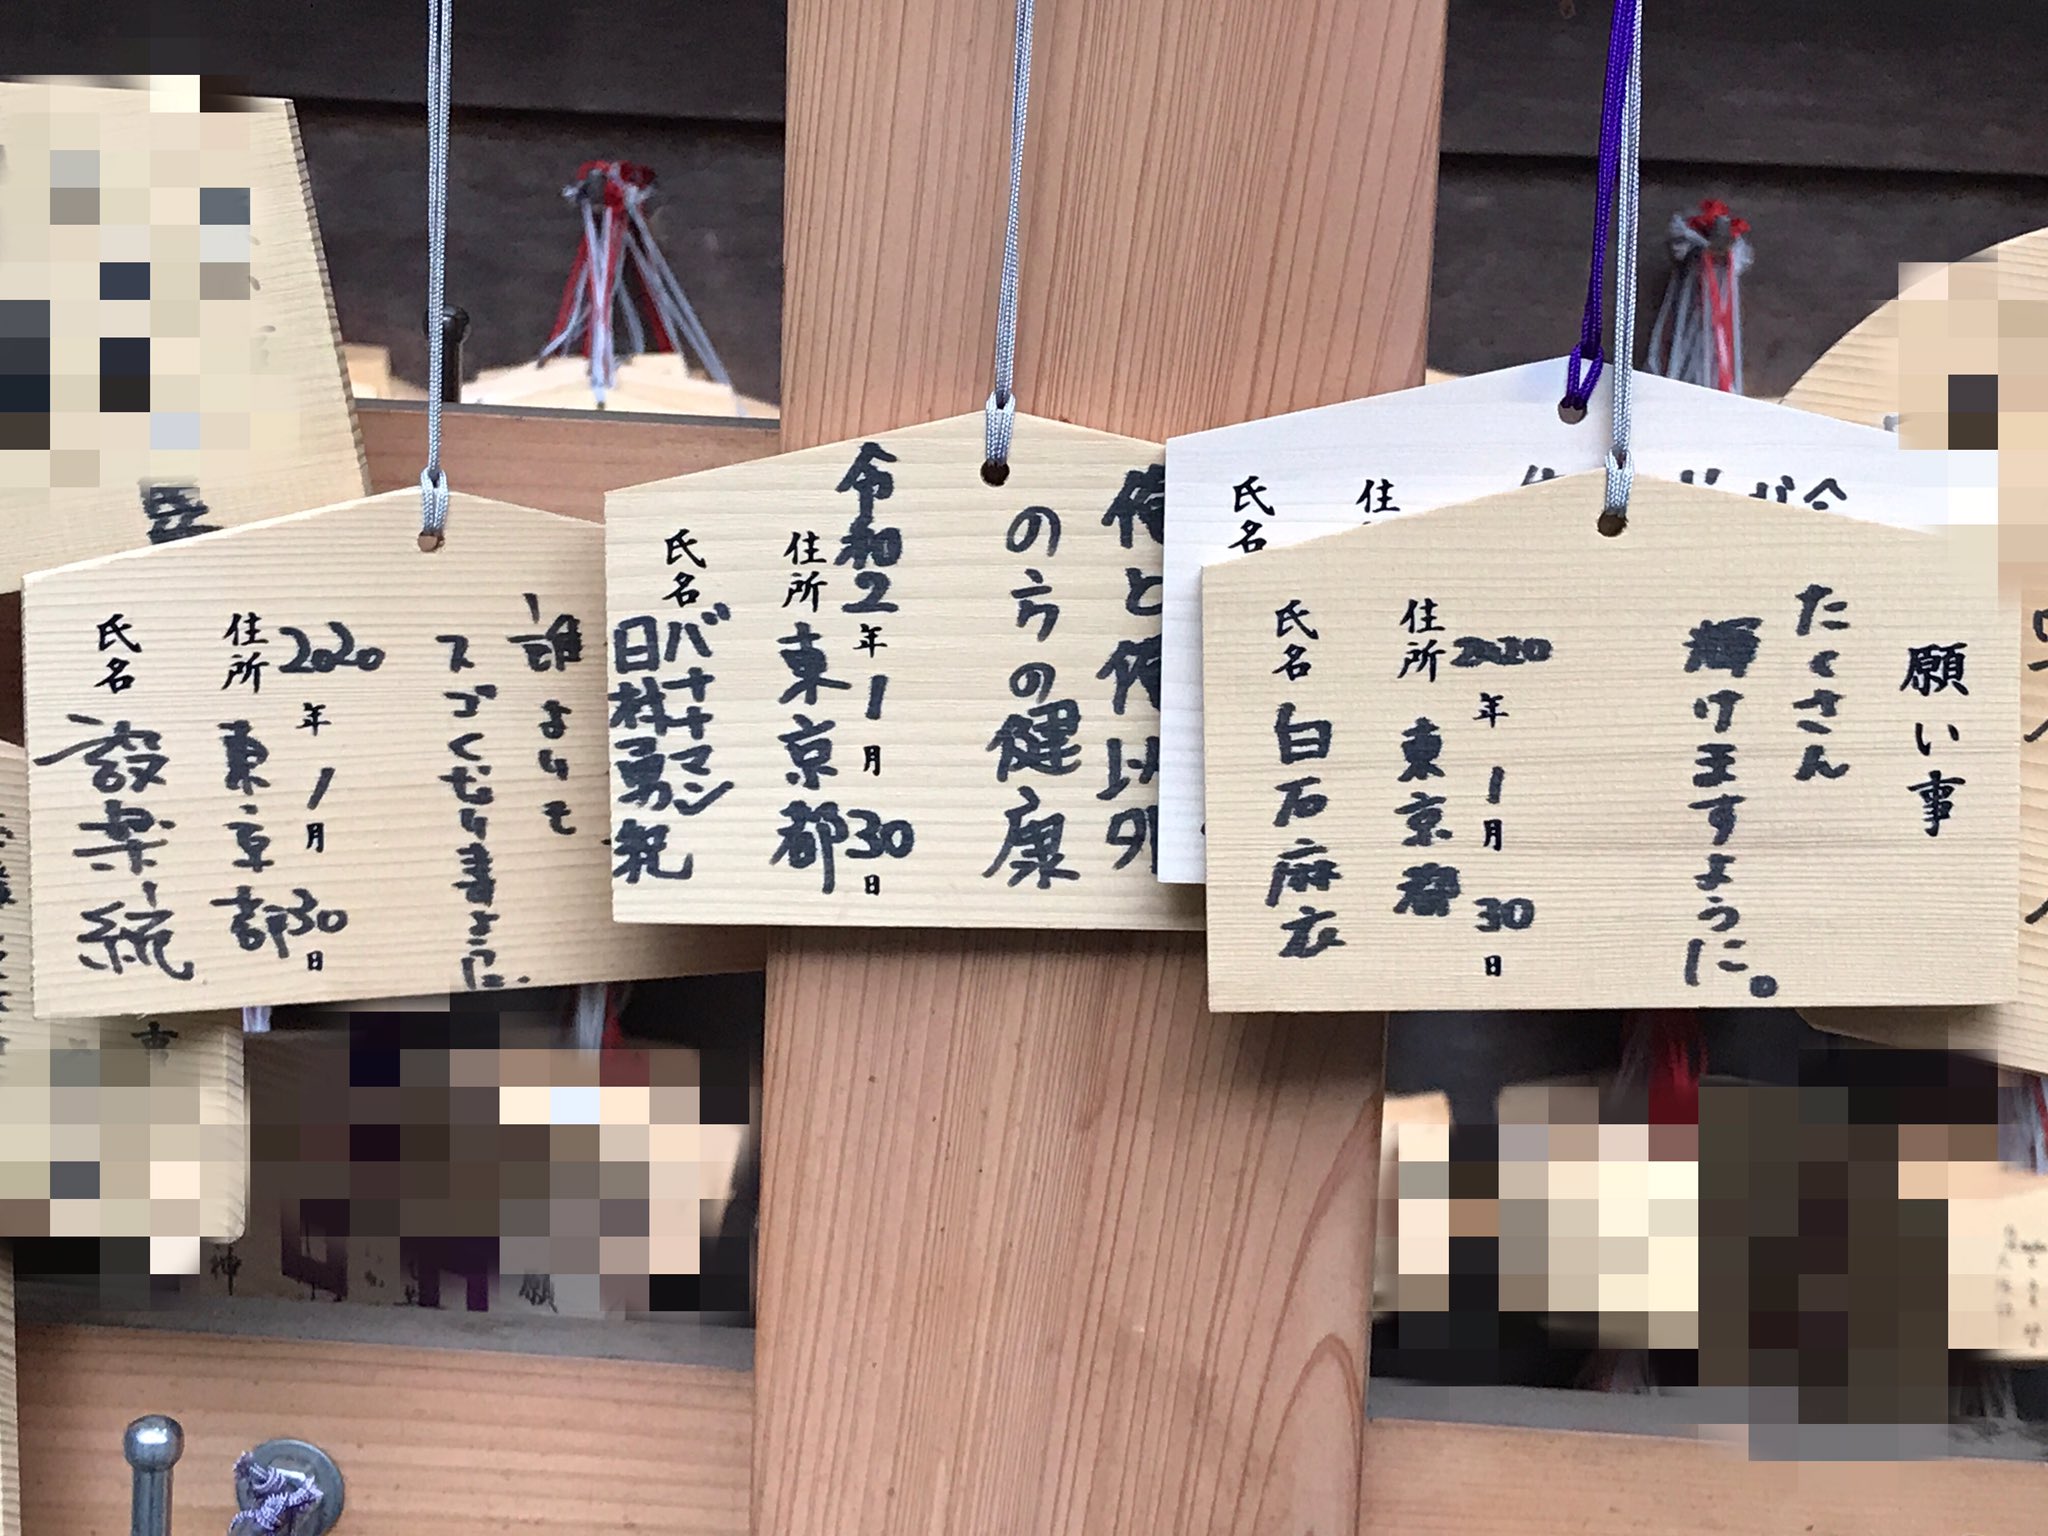 願い事
たくさん
輝けますように。
2020年1月30日
住所 東京都
氏名 白石麻衣
住
氏名
俺と俺以外
の方の健康
令和2年1月30日
住所 東京都
氏名 バナナマン
日村勇紀
誰よりも
スゴくむり
ように。
2020年1月30日
住所 東京都
氏名 設楽統